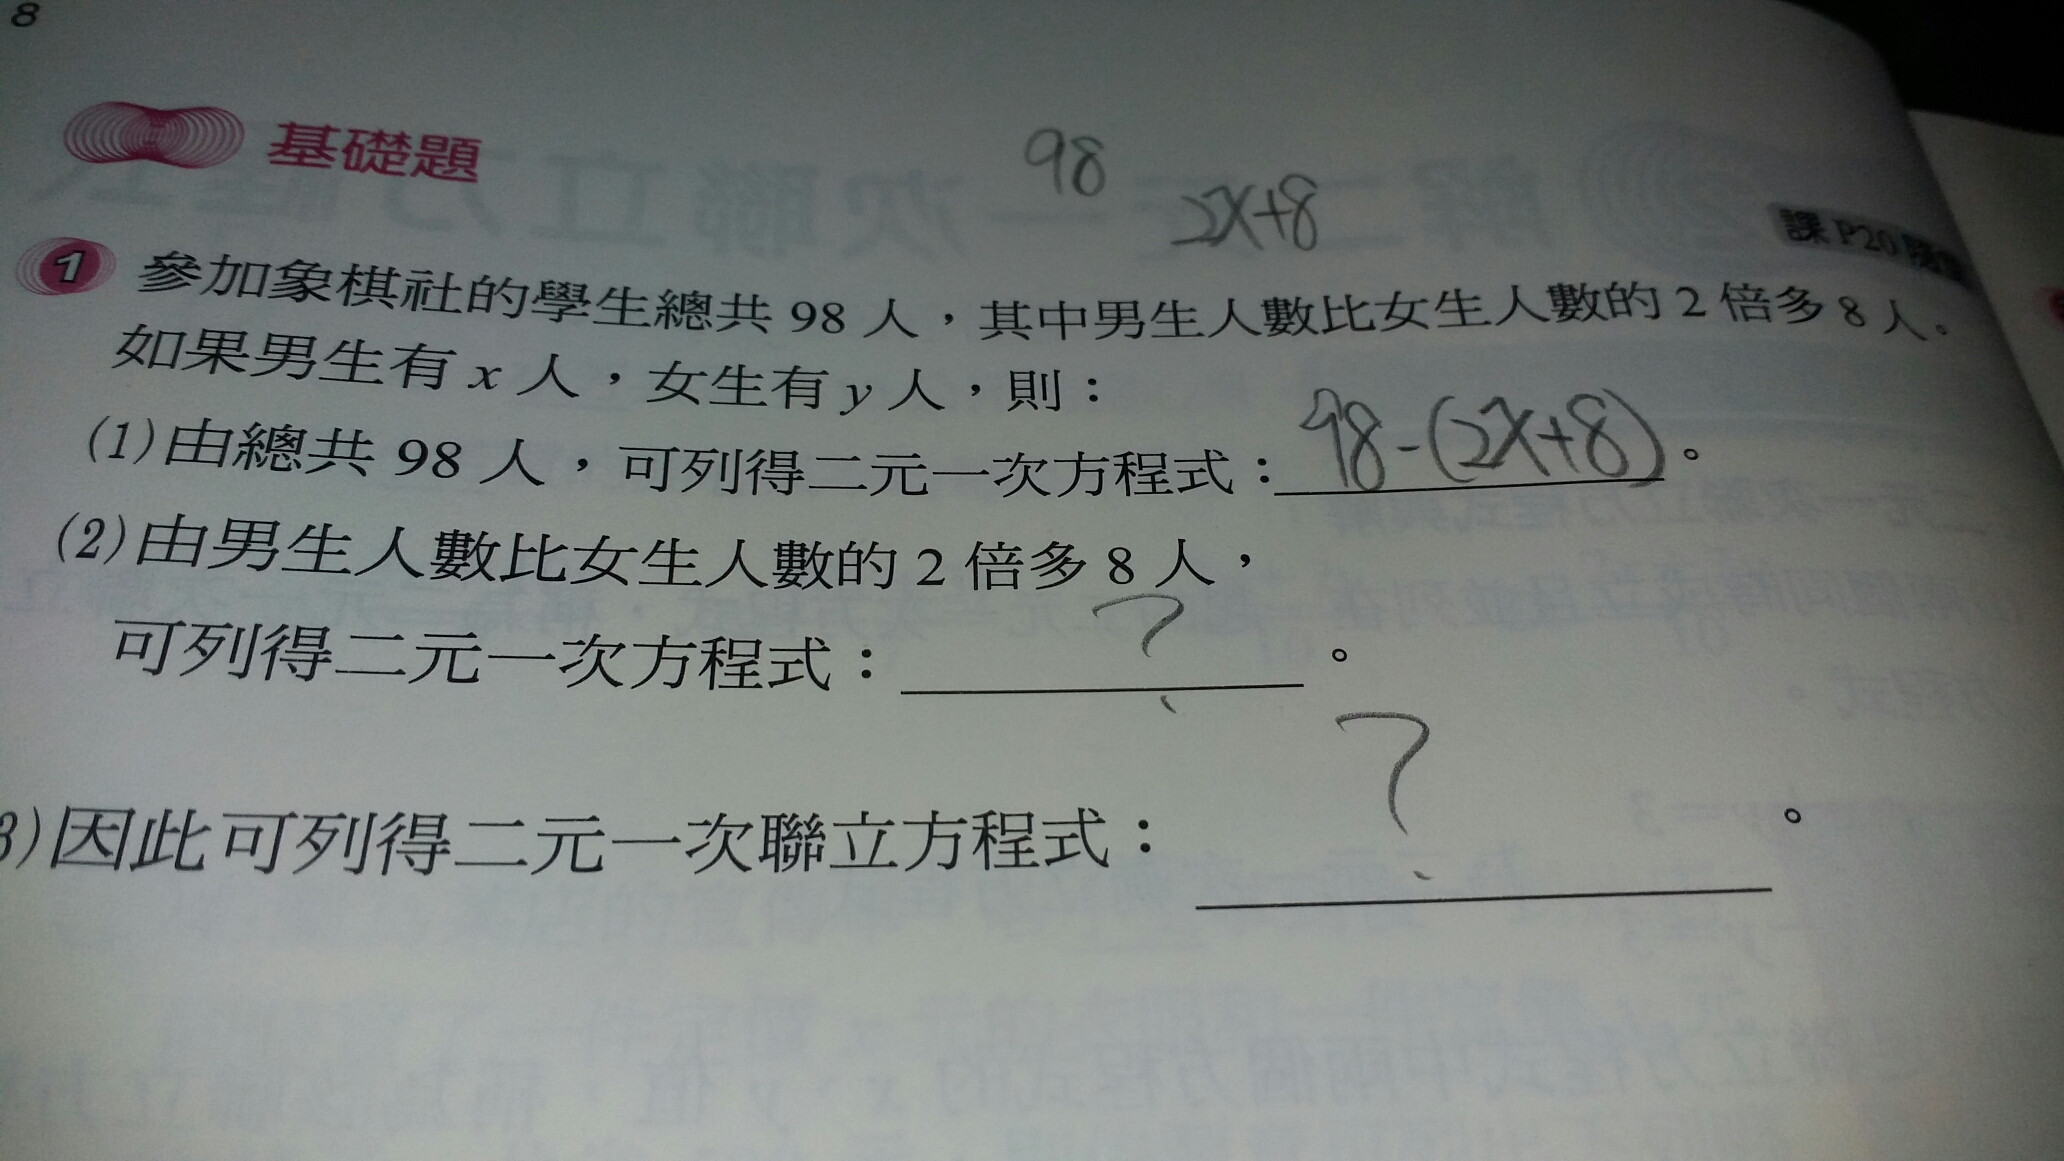 8
基礎題
98
2x+8
課 P20
1 參加象棋社的學生總共 98 人，其中男生人數比女生人數的 2 倍多 8 人。
如果男生有 x 人，女生有 y 人，則：
(1)由總共 98 人，可列得二元一次方程式：98-(2x+8)。
(2)由男生人數比女生人數的 2 倍多 8 人，
可列得二元一次方程式：？。
3)因此可列得二元一次聯立方程式：？。